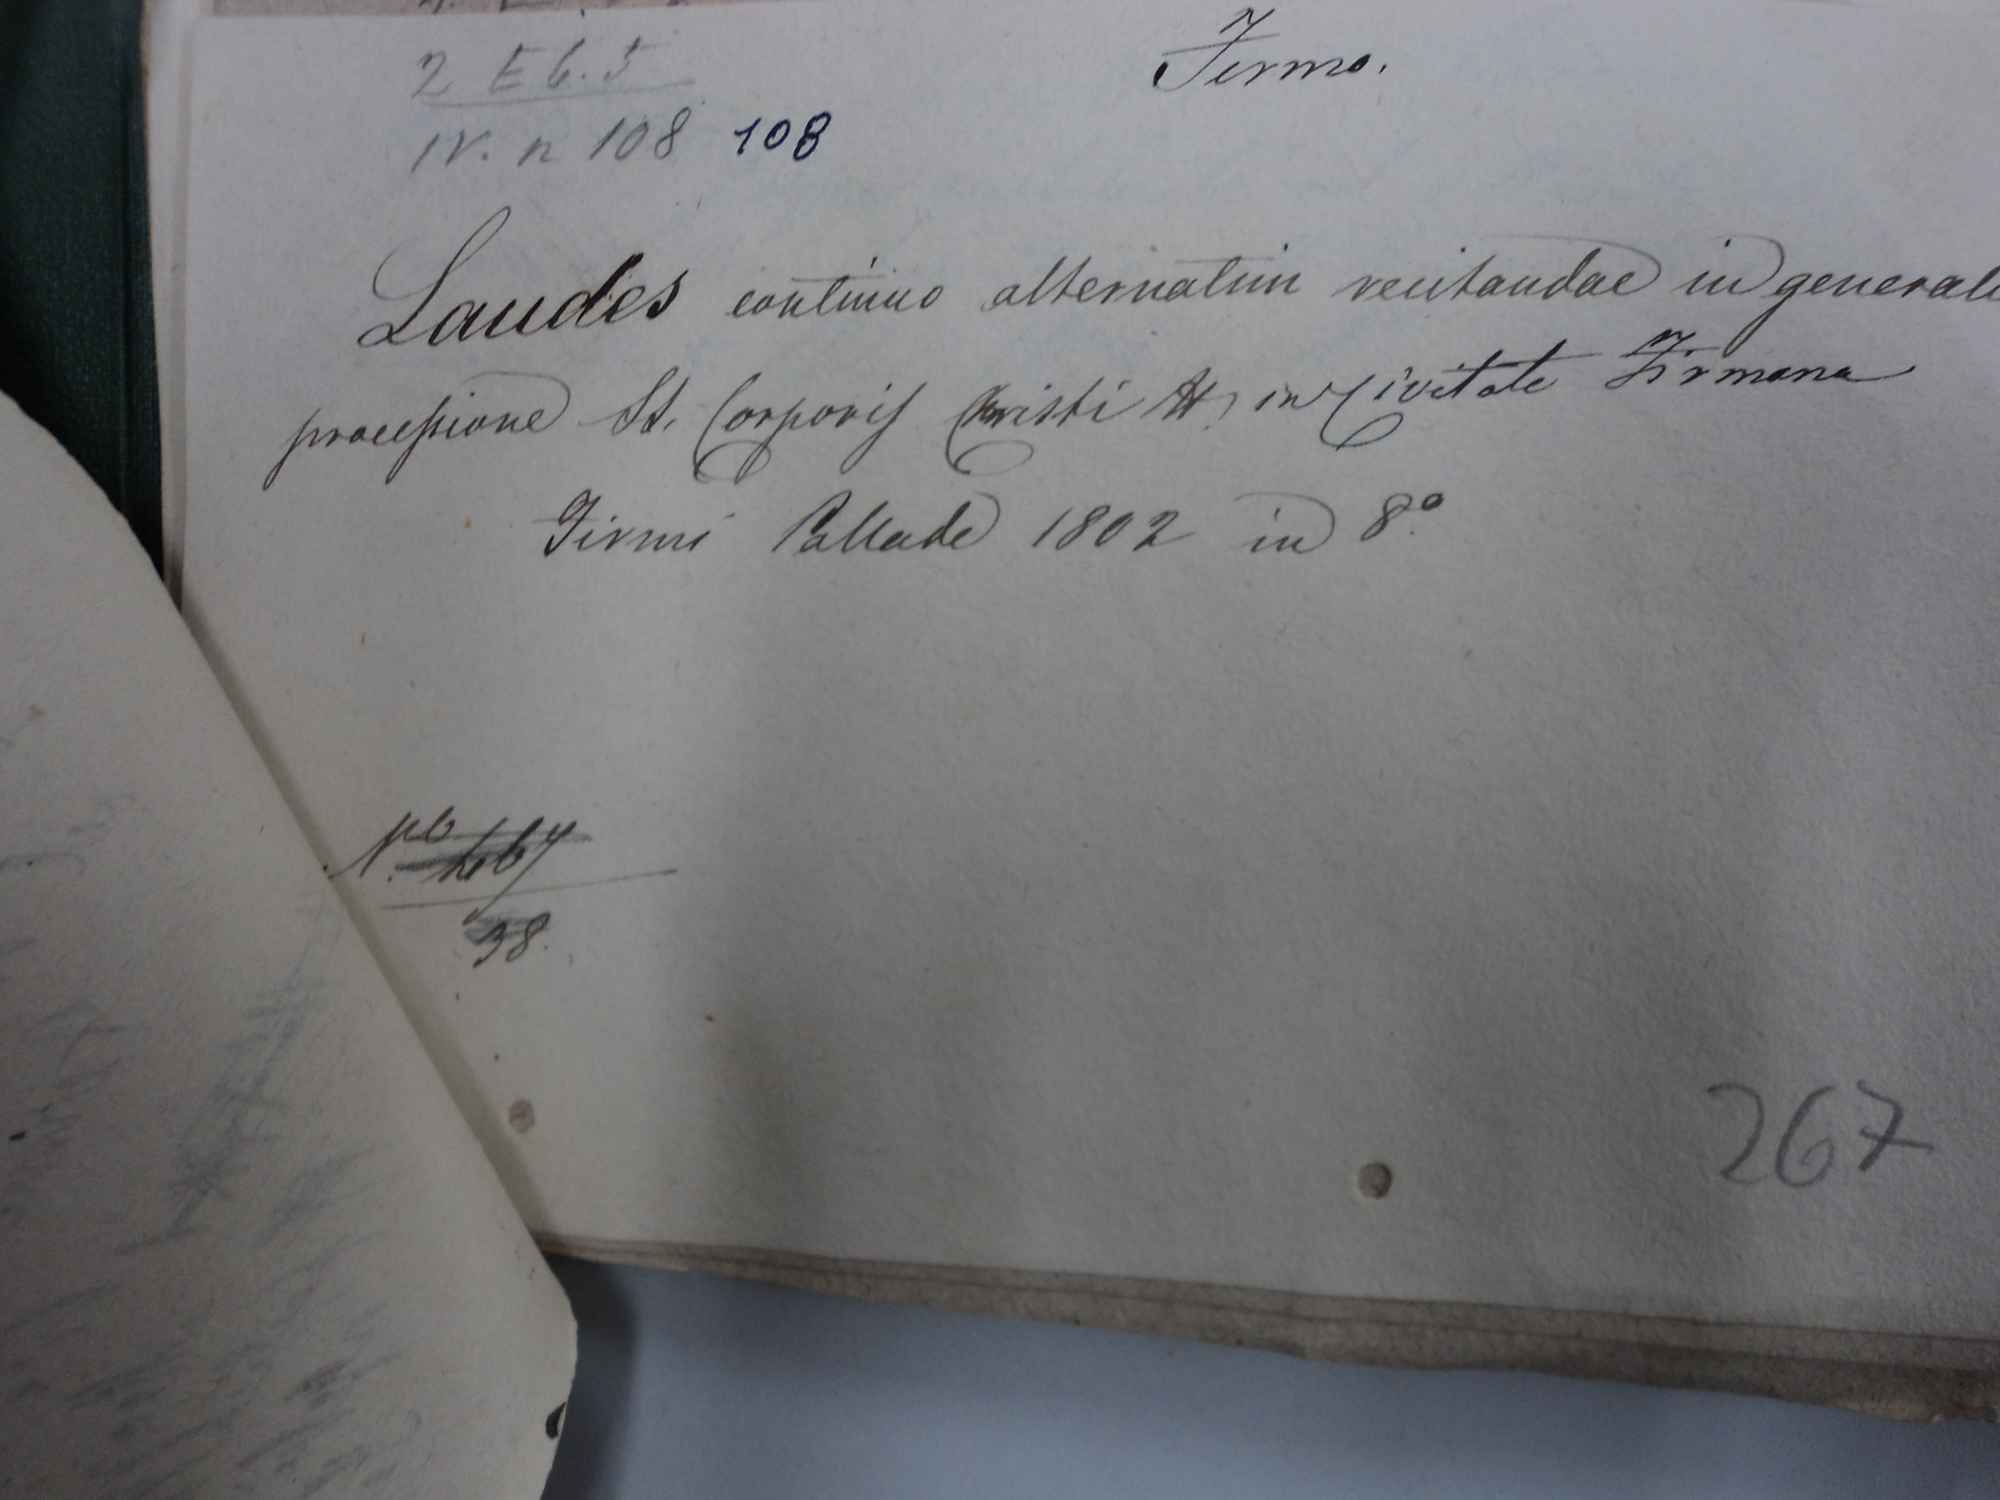 Fermo.
2 E 6. 5
IV. n 108 108
Laudes continuo alternatim recitandae in generali
processione St. Corporis Christi in Civitate Firmana
Firmi Pallade 1802 in 8.°
38.
267